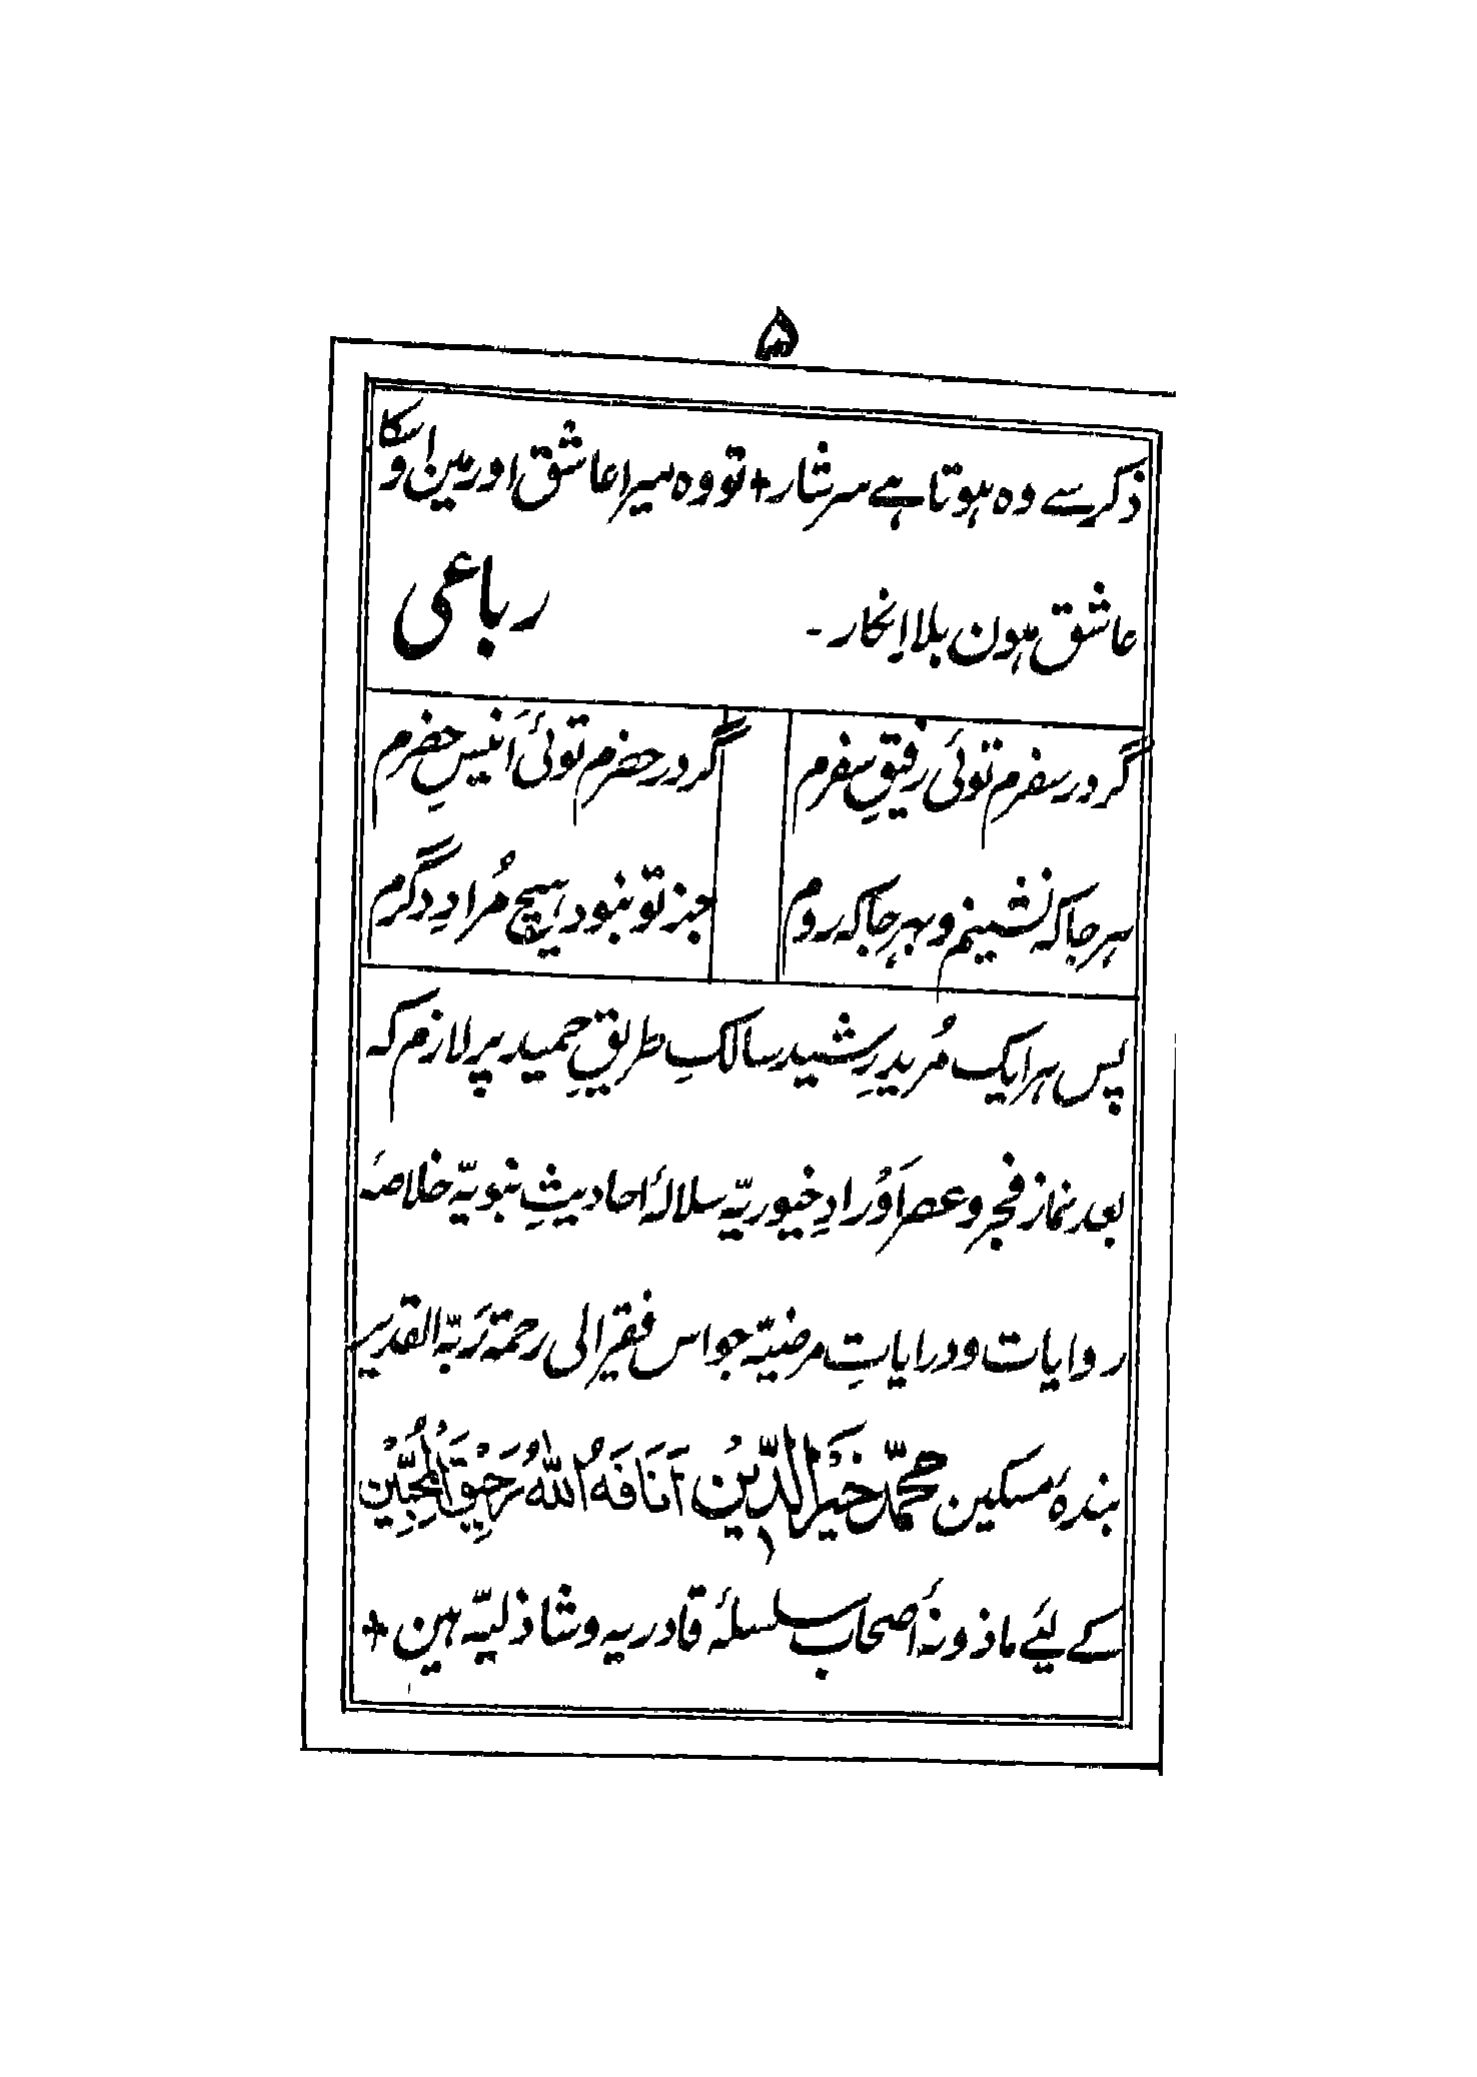 ۵
ذکر سے وہ ہوتا ہے سرشار + تو وہ میرا عاشق اور مین اوسکا
عاشق ہون بلا اِنکار۔ رباعی
گر در سفرم توئی رفیقِ سفرم گر در حضرم توئی اَنیسِ حضرم
ہر جا کہ نشینم و بہر جا کہ روم جز تو نبود ہیچ مُرادِ دگرم
پس ہر ایک مُریدِ رشید سالکِ طریقِ حمید پر لازم کہ
بعد نماز فجر و عصر اَوْرادِ خیوریّہ سلالۂ احادیثِ نبویّہ خلاصۂ
روایات و درایاتِ مرضیّہ جو اس فقیر الی رحمۃ رَبّہ القدیر
بندۂ مسکین محمّد خَیر الدّین اَنَافَہُ اللّٰہُ رَحِیْقَ الْمُحِبِّیْن
کے لئے ماذونۂ اَصحاب سلسلۂ قادریہ و شاذلیّہ ہین +